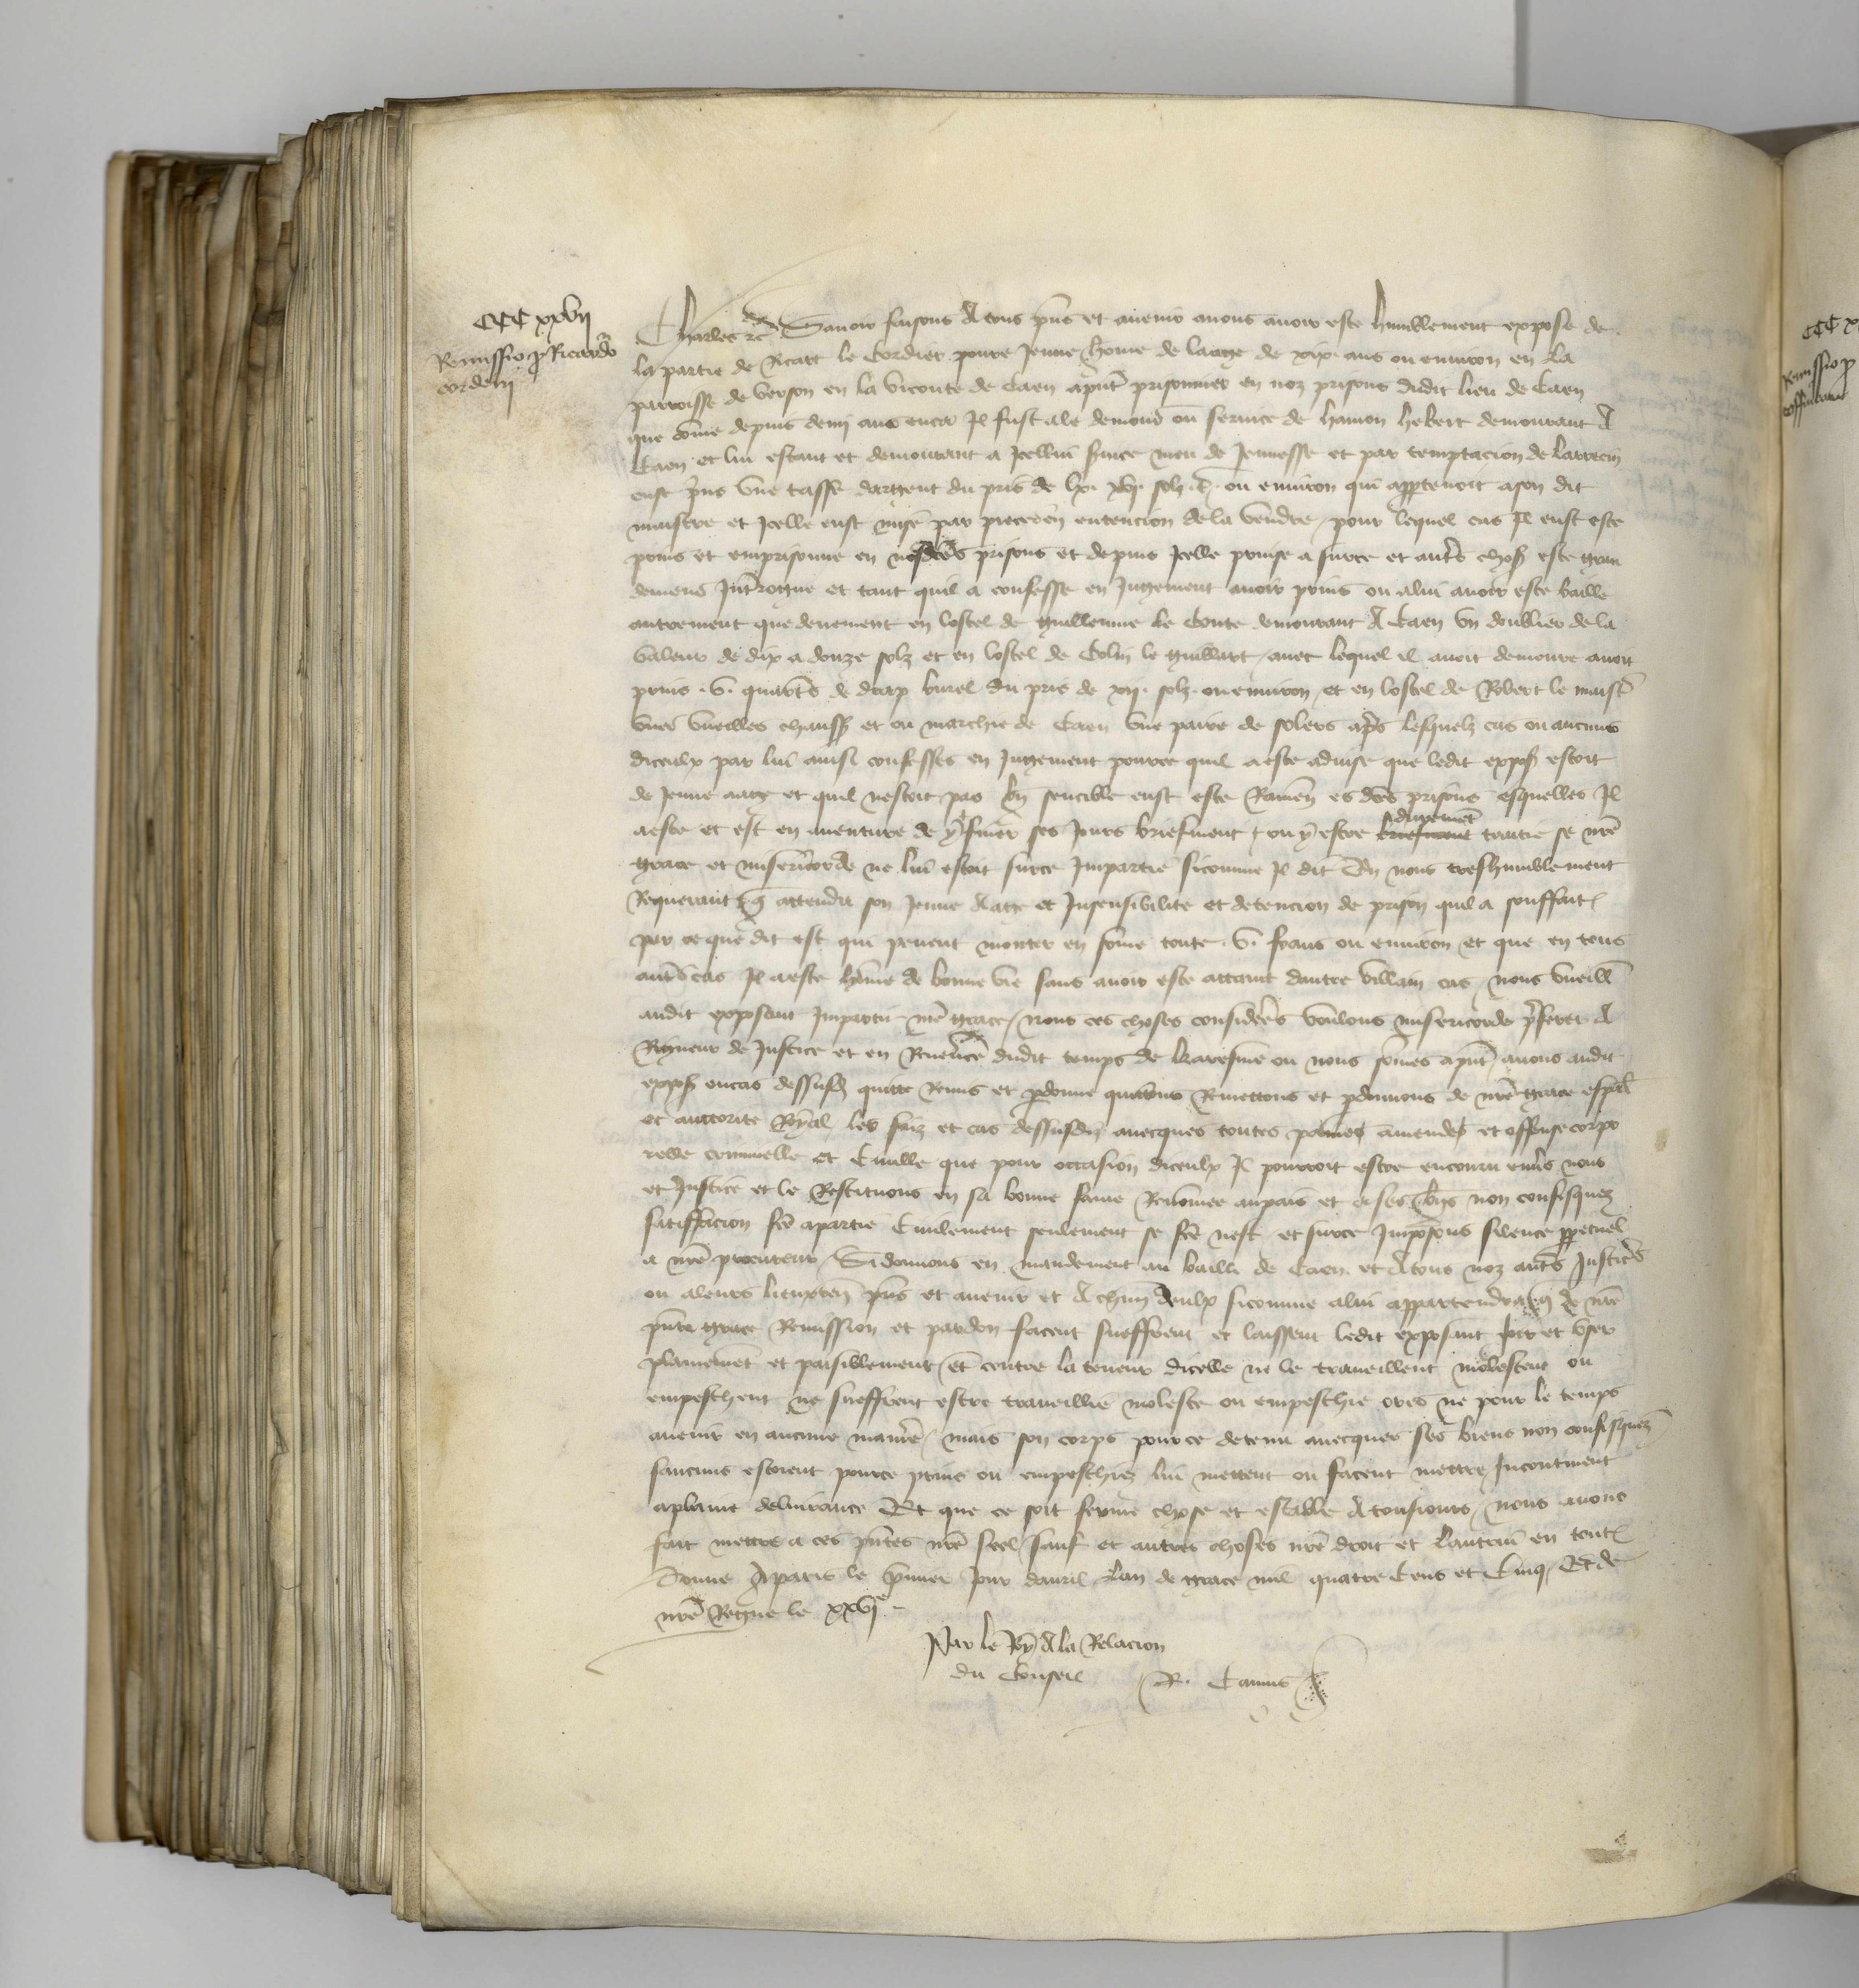 CCC xxvii
Remissio p Ricardo
corderii
Charles etc Savoir faisons A tous pns et avenir a nous avoir este humblement expose de
la partie de Ricart le Cordier povre jeune homme de laage de xix ans ou environ en la
parroisse de Verson en la viconte de Caen a pnt prisonnier en noz prisons dudit lieu de Caen
que come depuis demi an enca Il fust ale demourer ou service de Hamon Hebert demourant A
Caen et lui estant et demourant a Icellui service meu de Jeunesse et par temptacion de larrecin
eust prins une tasse dargent du pris de lx solz ou environ qui appartenoit a son dit
maistre et Icelle eust mise par entencion de la vendre / pour lequel cas Il eust este
prins et emprisonne en nosdites prisons et depuis Icelle prinse a sur ce et autres choses este gran
demens Interrogue et tant quil a confesse en Jugement avoir prins ou a lui avoir este baille
autrement que deuement en lostel de Guillemme le Conte demourant A Caen un doublier de la
valeur de dix a douze solz et en lostel de Colin le / avec lequel il avoit demoure avoit
prins .v. quartiers de drap burel du pris de xij solz ou environ / et en lostel de Robert le maistre
unes vieilles chausses et ou marchie de Caen une paire de solers apres lesquelz cas ou aucuns
diceulx par lui ainsi confesses en Jugement pource quil a este advise que ledit exposant estoit
de jeune aage et quil nestoit pas bien sencible eust este Ramene es dites prisons esquelles Il
a este et est en aventure de y finer ses jours briefment / ou y estre durement traitie se nre
grace et misericorde ne lui estoit sur ce Impartie sicomme Il dit En nous treshumblement
Requerant q attendu son jeune Aage et Insensibilite et detencion de prison quil a souffert
par ce que dit est qui pevent monter en somme toute .v. frans ou environ et que en tous
autres cas Il a este homme de bonne vie sans avoir este attaint dautre villain cas / nous vueill
audit exposant Impartir nre grace / Nous ces choses considerees voulons misericorde preferer A
Rigueur de Justice et en Reverence dudit temps de karesme ou nous sommes a pnt / avons audit
expos ou cas dessusd quitte Remis et pdonne quittons Remettons et pdonnons de nre grace espal
et auctorite Royal les faiz et cas dessusdiz avecques toutes paines amendes et offense corpo
relle criminelle et Civille que pour occasion diceulx Il pourroit estre encouru envers nous
et Justice et le Restituons en sa bonne fame Renommee au pais et a ses biens non confisquez
satisfacion fcte a partie Civilement seulement se fcte nest et sur ce Imposons silence perpetuel
a nre procureur / Si donnons en mandement au bailli de Caen et A tous noz autres Justiciers
ou a leurs lieuxten pns et avenir et A chun deulx sicomme a lui appartendra q de nre
pnte grace Remission et pardon facent sueffrent et laissent ledit exposant joir et user
plainement et paisiblement / et contre la teneur dicelle ne le traveillent molestent ou
empeschent ne sueffrent estre traveillie moleste ou empeschie ores ne pour le temps
avenir en aucune maniere / mais son corps pour ce detenu avecques ses biens non confisquez
saucuns estoient pour ce prins ou empeschiez lui mettent ou facent mettre Incontinent
a plaine delivrance Et que ce soit ferme chose et estable A tousiours / nous avons
fait mettre a ces pntes nre Seel / sauf et autres choses nre droit et lautrui en toutes
Donne A paris le premier jour davril Lan de grace mil quatre Cens et Cinq / Et de
nre Regne le xxvje
Par le Roy A la Relacion
du Conseil R. Camus
CCC x
Remissio p